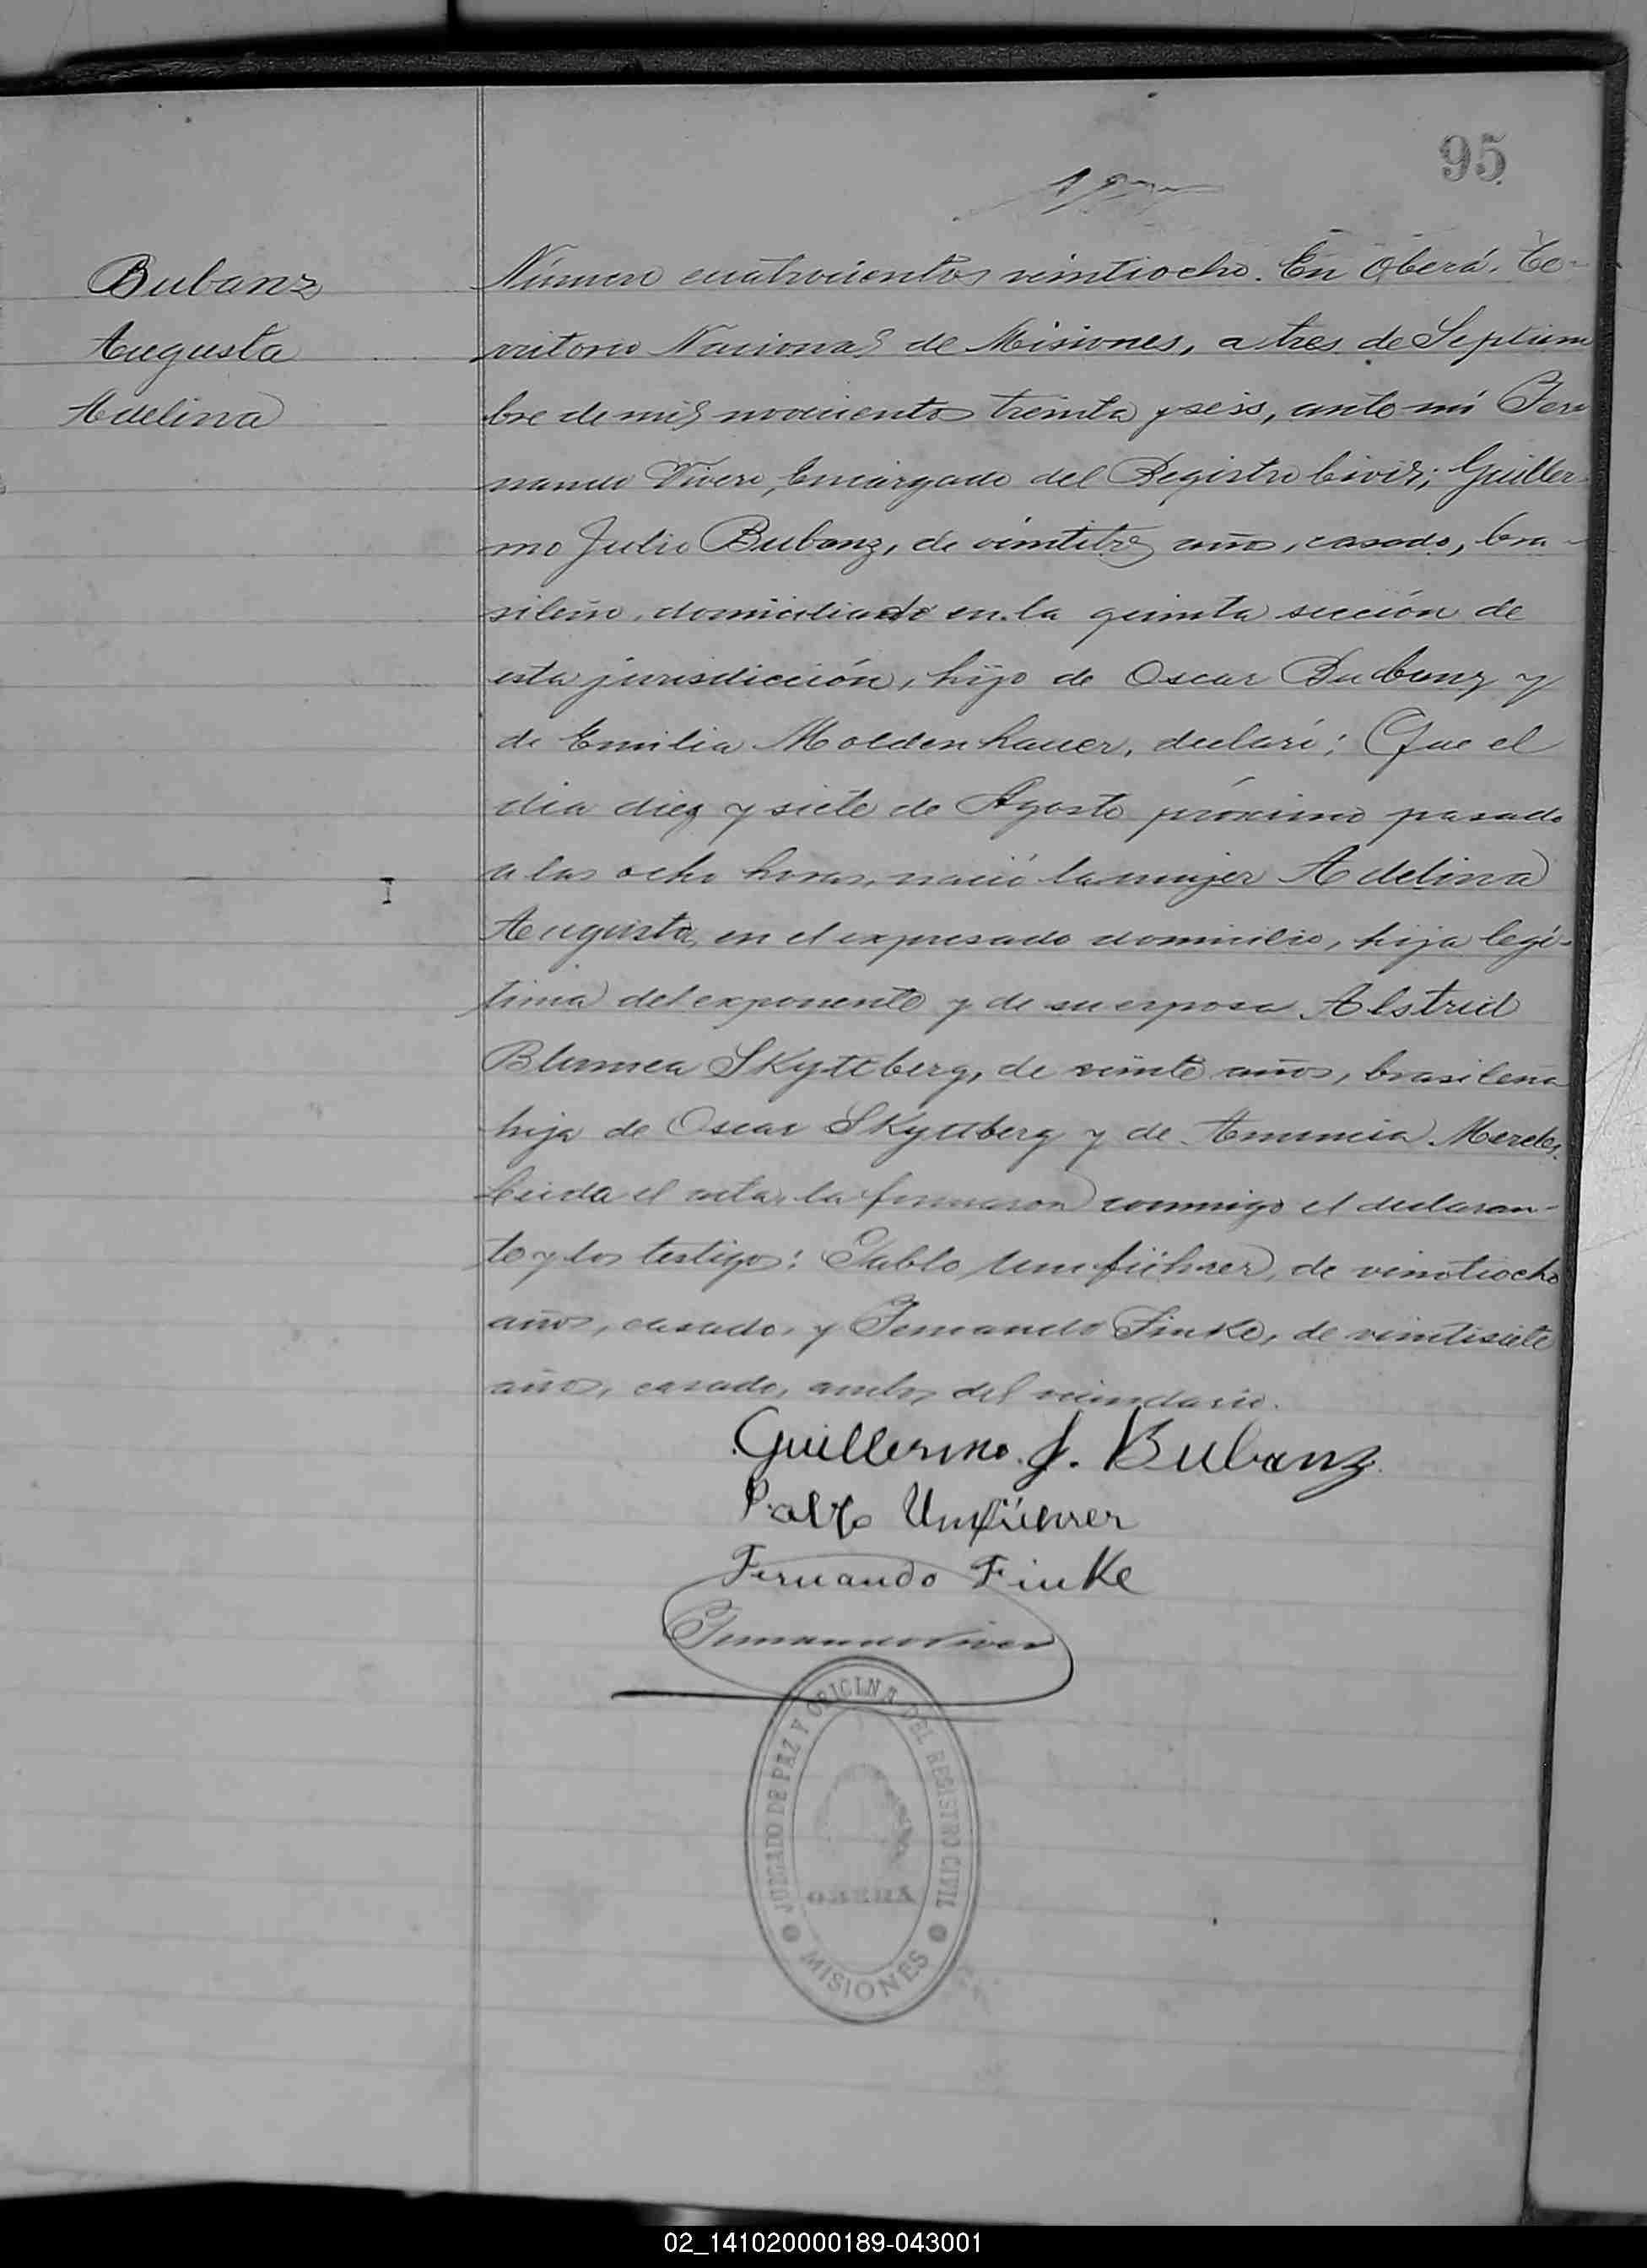 95
Bubanz
Augusta
Adelina
Número cuatrocientos veintiocho. En Oberá, Te-
rritorio Nacional de Misiones, a tres de Septiem
bre de mil novecientos treinta y seis, ante mí Fer
nando Vivero, Encargado del Registro Civil; Guiller-
mo Julio Bubanz, de veintitrés años, casado, bra-
sileño, domiciliado en la quinta sección de
esta jurisdicción, hijo de Oscar Bubanz y
de Emilia Moldenhauer, declaró: Que el
día diez y siete de Agosto próximo pasado
a las ocho horas, nació la mujer Adelina
Augusta, en el expresado domicilio, hija legí-
tima del exponente y de su esposa Alstrid
Blumea Skyttberg, de veinte años, brasileña
hija de Oscar Skyttberg y de
Leída el acta, la firmaron conmigo el declaran-
te y los testigos: Pablo Umführer, de veintiocho
años, casado, y Fernando Finke, de veintisiete
años, casado, ambos del vecindario.
Guillermo J. Bubanz
Pablo Umführer
Fernando Finke
JUZGADO DE PAZ Y OFICINA DEL REGISTRO CIVIL
OBERA
MISIONES
02_141020000189-043001